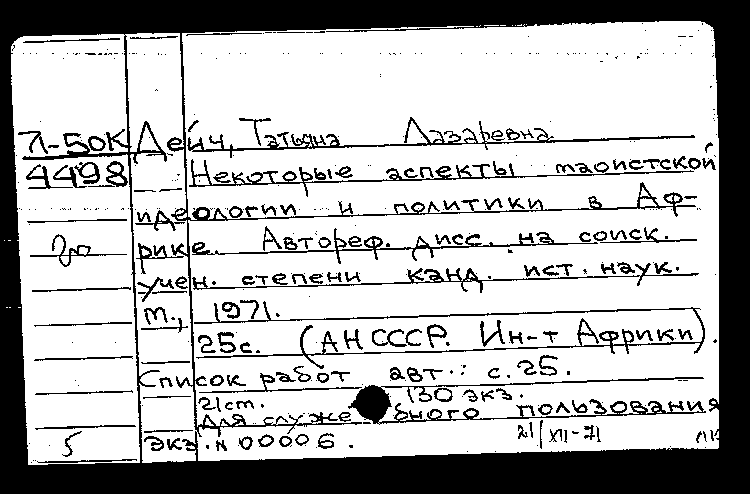 Л-50К Дейч, Татьяна Лазаревна
4498 Некоторые аспекты маоистской
идеологии и политики в Аф-
рике. Автореф. дисс. на соиск.
учен. степени канд. ист. наук.
м., 1971.
25с. (АН СССР. Ин-т Африки).
Список работ авт.: с.25.
21см. 130 экз.
Для служебного пользования
5 экз. N 00006. 21/XII-71